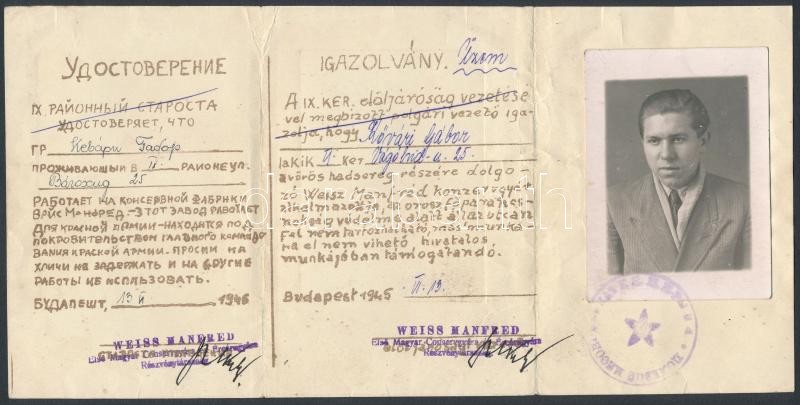 УДОСТОВЕРЕНИЕ
IX. РАЙОННЫЙ СТАРОСТА
УДОСТОВЕРЯЕТ, ЧТО
ГР Кевари Габор
ПРОЖИВАЮЩЫЙ В II. РАЙОНЕ УЛ.
25
РАБОТАЕТ НА КОНСЕРВНОЙ ФАБРИКИ
ВАЙС МАНФРЕД - ЭТОТ ЗАВОД РАБОТАЕТ
ДЛЯ КРАСНОЙ АРМИИ - НАХОДИТСЯ ПОД
ПОКРОВИТЕЛЬСТВОМ ГЛАВНОГО КОМАНДО
ВАНИЯ КРАСНОЙ АРМИИ. ПРОСИМ НА
УЛИЧИ НЕ ЗАДЕРЖАТЬ И НА ДРУГИЕ
РАБОТЫ НЕ ИСПОЛЬЗОВАТЬ.
БУДАПЕШТ, 13 II 1945
WEISS MANFRED
Első Magyar Conservgyára és Ércárugyára
Részvénytársaság
IGAZOLVÁNY. Üzem
A IX. KER. elöljáróság vezetésé
vel megbizott polgári vezető iga-
zolja, hogy Kővári Gábor
lakik II. Ker. Vágóhid-u. 25.
a vörös hadsereg részére dolgo
zó Weisz Manfréd konzervgyár
alkalmazottja, az orosz főparancs-
nokság védelme alatt áll az utcán
fel nem tartóztatható, más munká-
ra el nem vihető, hivatalos
munkájában támogatandó.
Budapest 1945 II. 13.
WEISS MANFRED
Első Magyar Conservgyára és Ércárugyára
Részvénytársaság